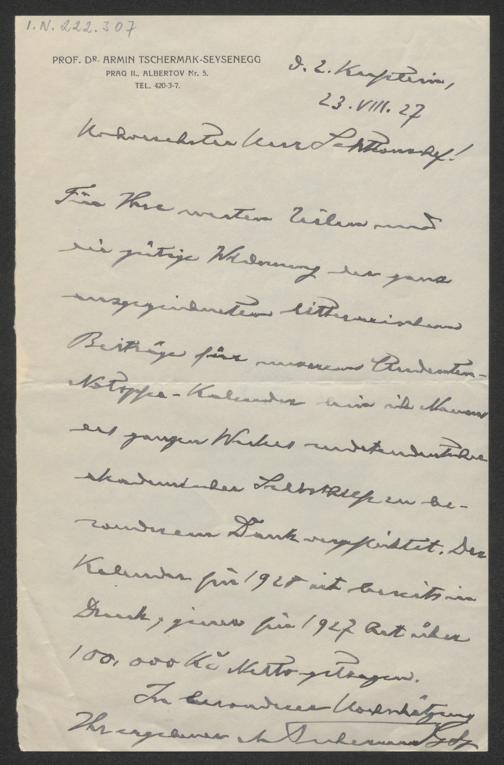 I.N. 222.307
PROF. DR. ARMIN TSCHERMAK-SEYSENEGG
PRAG II., ALBERTOV Nr. 5.
TEL. 420-3-7.
d. Z.
23.VIII.27
Hochverehrter Herr Sektionschef!
Für Ihre werten Zeilen und
die gütige Widmung des ganz
ausgezeichneten litterarischen
Beitrags für unseren Studenten-
Kalender bin ich Namens
des ganzen Werkes sudetendeutscher
akademischer Selbsthilfe zu be-
sonderem Dank verpflichtet. Der
Kalender für 1928 ist bereits in
Druck, jener für 1927 hat über
100.000 Kč Netto getragen.
In besonderer Hochschätzung
Ihr ergebener A Tschermak